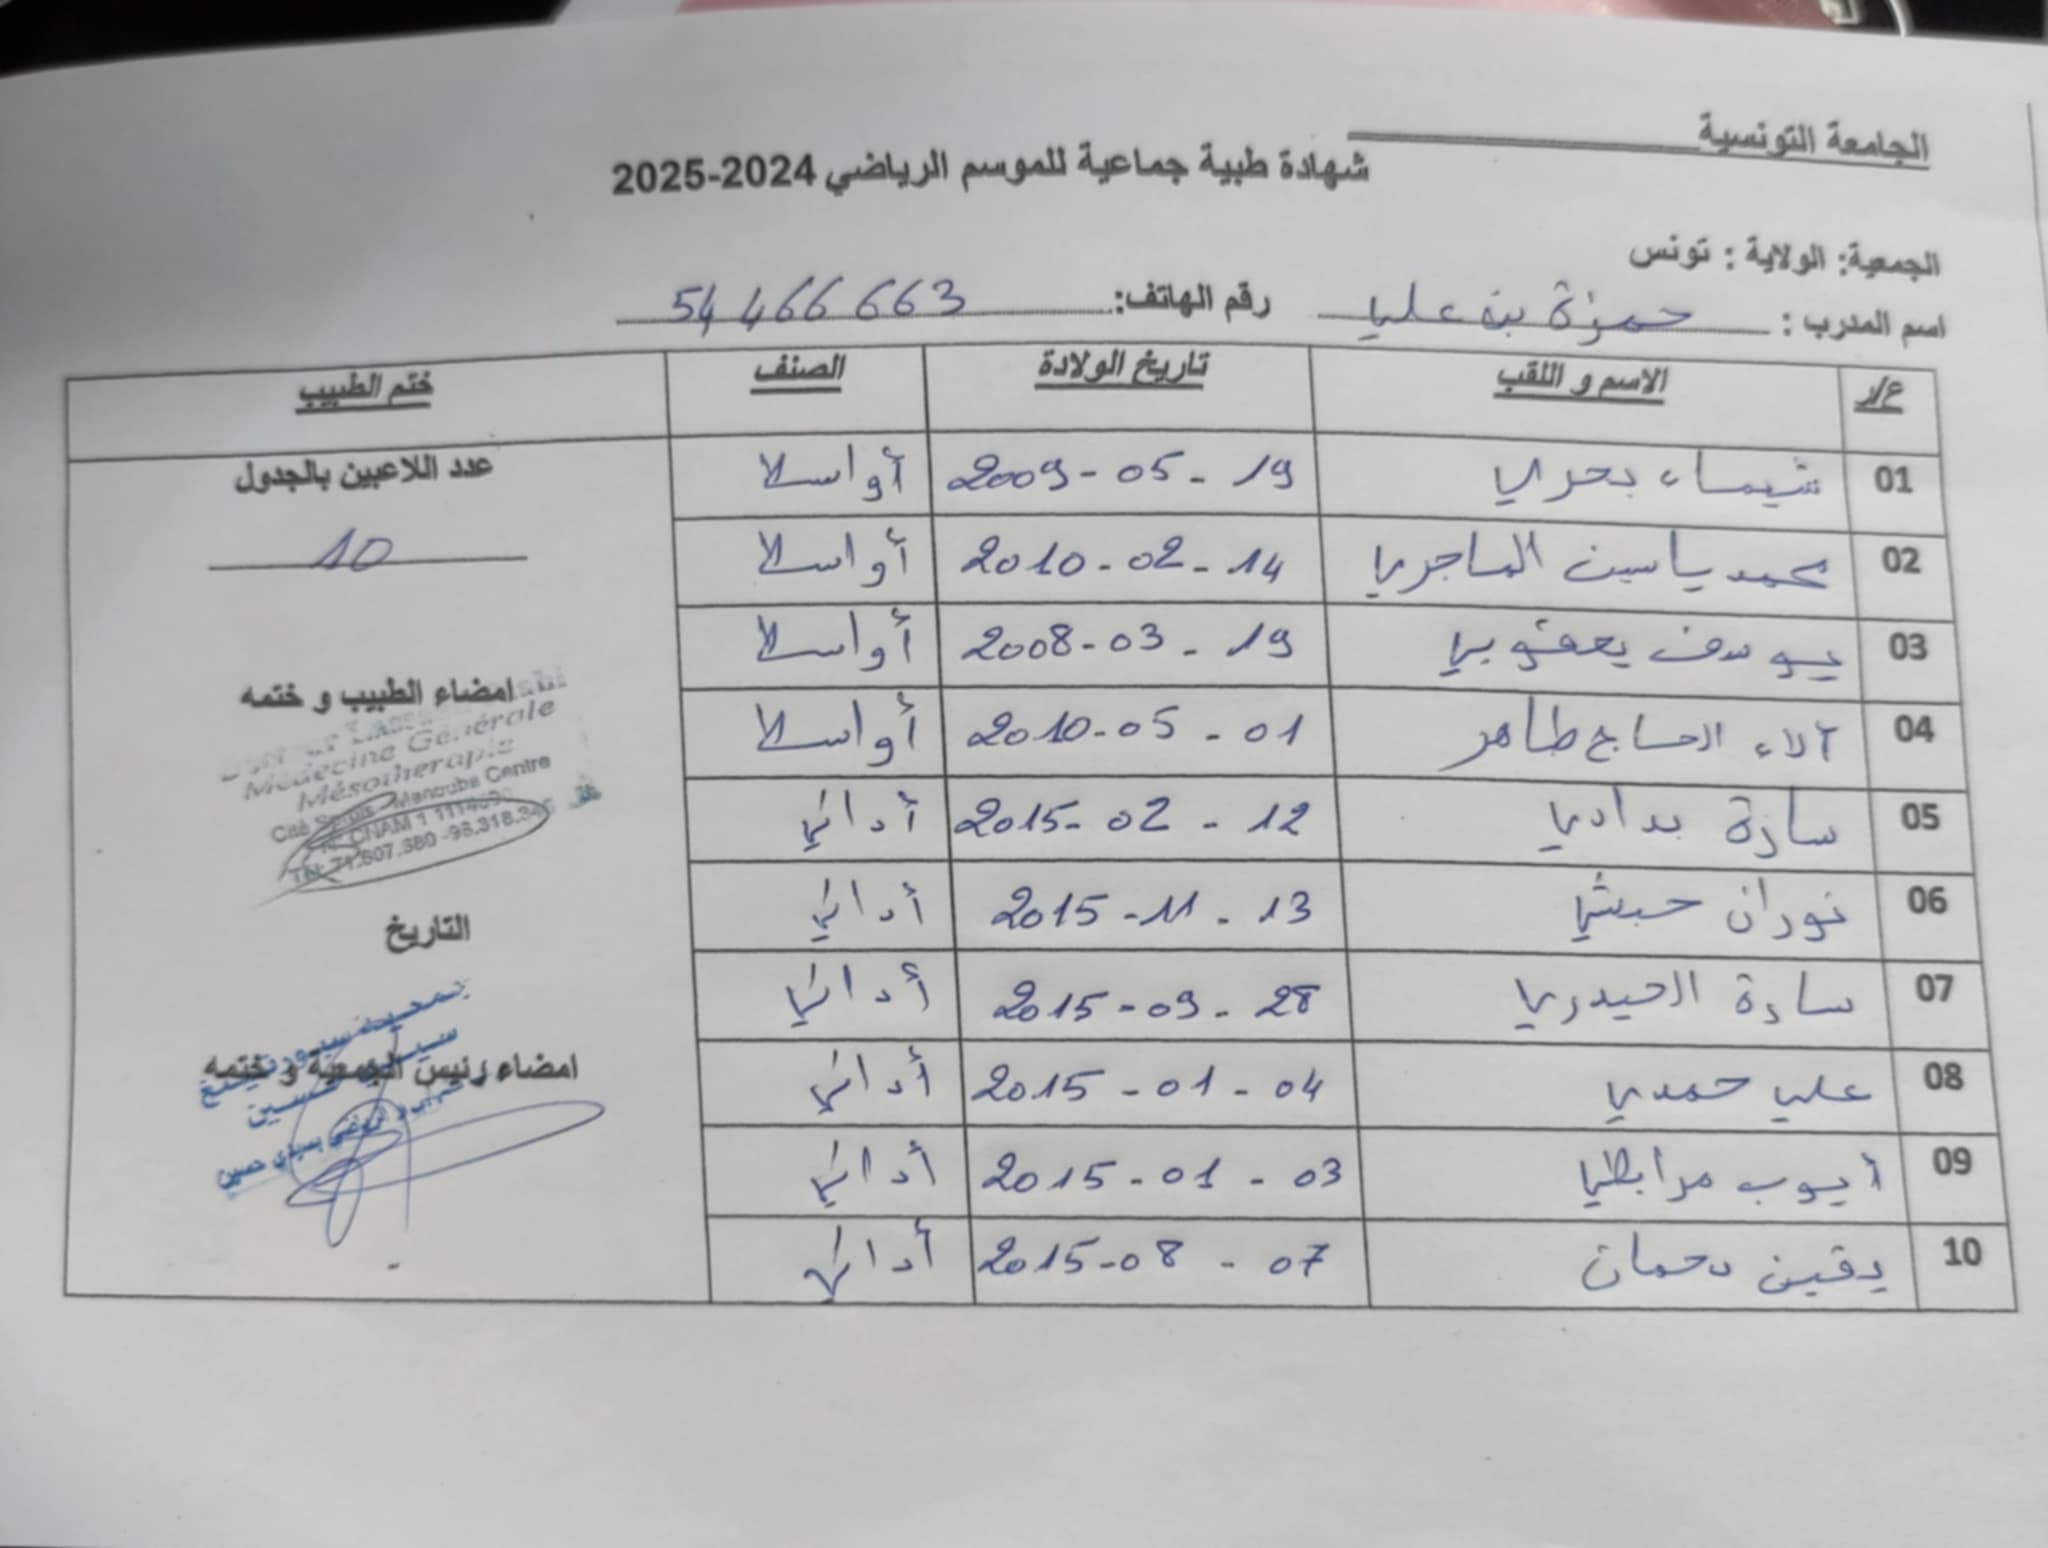 الجامعة التونسية
شهادة طبية جماعية للموسم الرياضي 2024-2025
الجمعية: الولاية : تونس
اسم المدرب : حمزة بن علي رقم الهاتف: 54 466 663
ع/ر الاسم و اللقب تاريخ الولادة الصنف ختم الطبيب
01 شيماء بحري 2009-05-19 أواسط
02 محمد ياسين الماجري 2010-02-14 أواسط
03 يوسف يعقوبي 2008-03-19 أواسط
04 آلاء الحاج طاهر 2010-05-01 أواسط
05 سارة بدادي 2015-02-12 أداني
06 نوران حبشي 2015-11-13 أداني
07 سارة الحيدري 2015-09-28 أداني
08 علي حمدي 2015-01-04 أداني
09 أيوب مرابطي 2015-01-03 أداني
10 يقين دحمان 2015-08-07 أداني
عدد اللاعبين بالجدول
10
امضاء الطبيب و ختمه
Médecine Générale
Mésotherapie
Cité Manouba Centre
CNAM 1
Tél: 71.607.380 -98.318.34
التاريخ
امضاء رئيس الجمعية و ختمه
بسيدي حسين